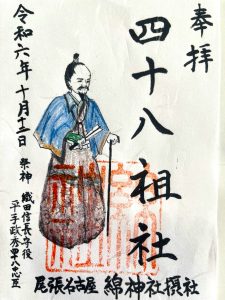 奉拝
四十八祖社
令和六年十月十三日
祭神 織田信長守役
平手政秀
尾張名古屋 綿神社摂社